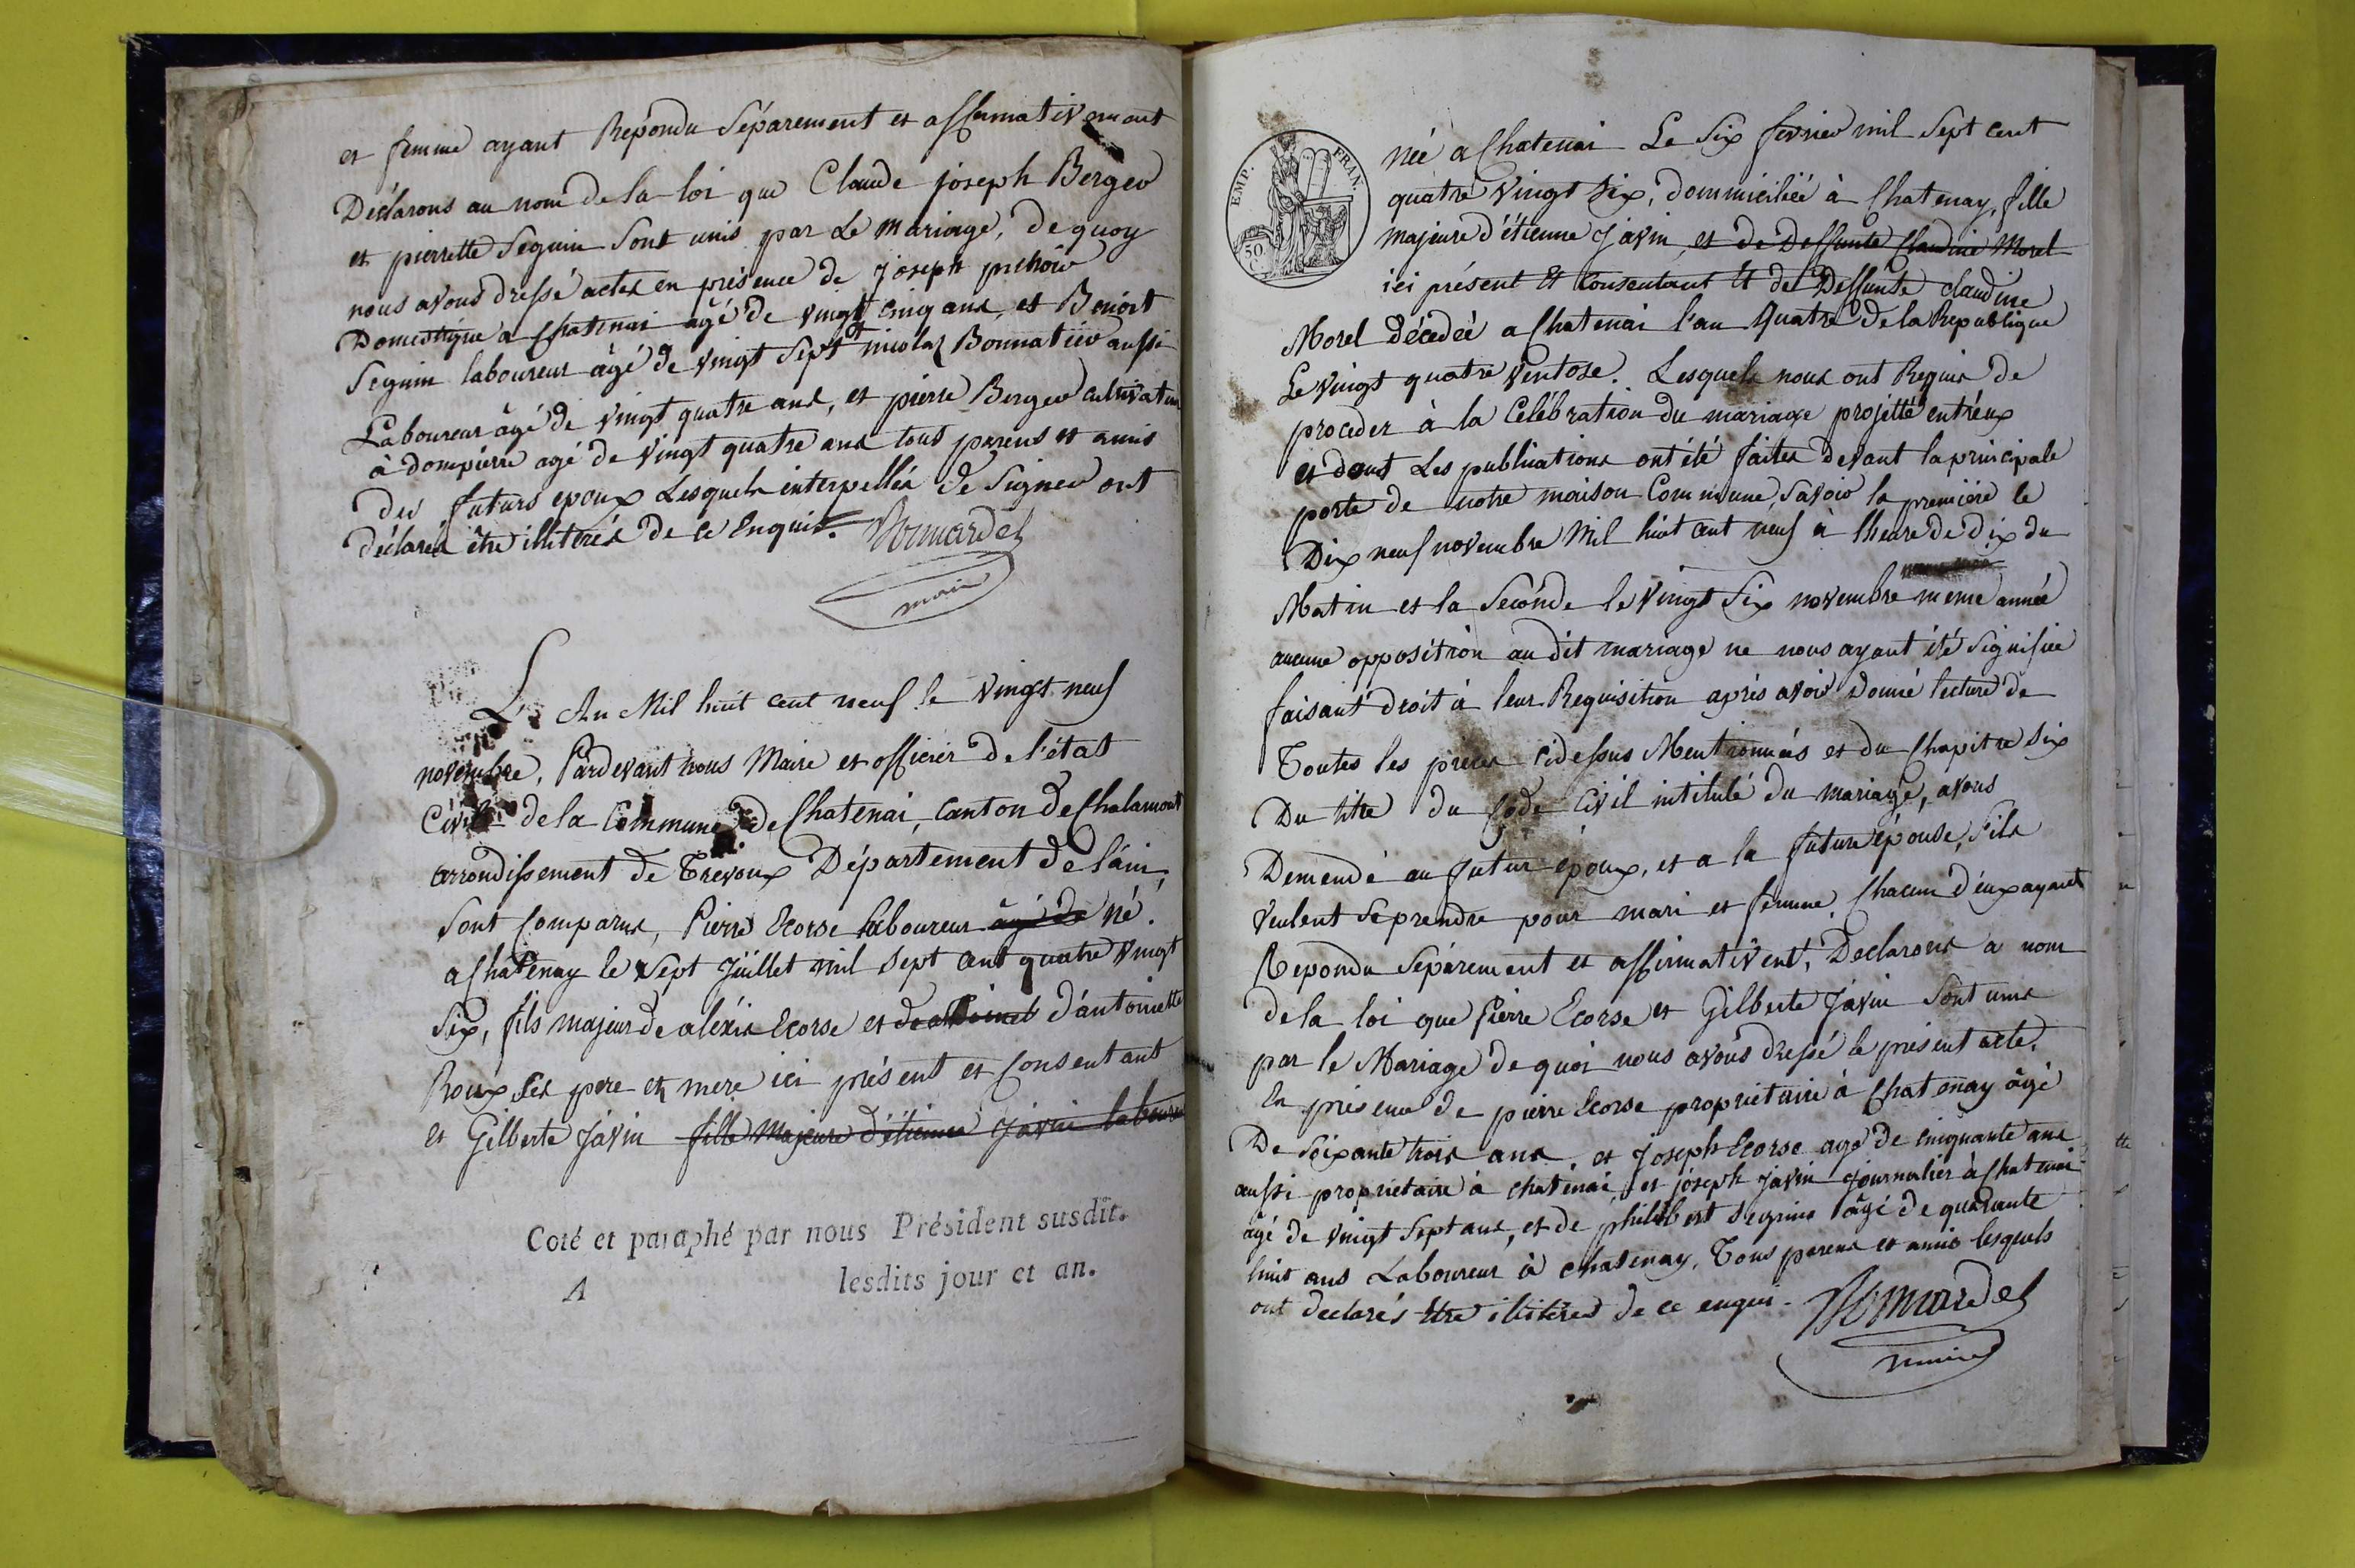 et femme ayant Repondu Séparement et affirmativement
Déclarons au nom de la loi que Claude joseph Berger
et pierrette Seguin Sont unis par Le mariage, de quoy
nous avons dressé actes en présence de joseph
Domestique a Chatenai agé de vingt cinq ans, et Benoit
Seguin laboureur âgé de vingt Sept nicolas Bonnatier aussi
Laboureur âgé de vingt quatre ans, et pierre Berger cultivateur
à dompierre agé de vingt quatre ans tous parens et amis
des futurs epoux Lesquels interpellés de Signer ont
déclarés être illiterés de ce Enquis.
maire
L'An Mil huit cent neuf le vingt neuf
novembre, Pardevant nous Maire et officier de l'état
Civil de la Commune de Chatenai, Canton de Chalamont
arrondissement de Trevoux Département de l'ain,
Sont Comparus, Pierre Ecorse laboureur âgé de né.
a Châtenay le Sept Juillet mil Sept cent quatre vingt
Six, fils majeur de aléxis Ecorse et d'antoinette
Roux Ses pere et mere ici présent et Consentant
et Gilberte Javin fille Majeure d'étienne Javin laboureur
Coté et paraphé par nous Président susdit.
A lesdits jour et an.
EMP. FRAN.
50 C.
née a Chatenai Le Six fevrier mil Sept cent
quatre vingt Six, dommiciliée à Chatenay, fille
majeure d'étienne Javin, et de Deffunte Claudine Morel
ici présent Et Consentant Et de Deffunte claudine
Morel décedée a Chatenai l'an Quatre de la Republique
Le vingt quatre Ventose. Lesquels nous ont Requis de
proceder à la Célébration du mariage projetté entr'eux
et dont Les publications ont été faites devant la principale
porte de notre maison Commune, Savoir la premiére le
Dix neuf novembre Mil huit cent neuf à lheure de dix du
Matin et la Seconde le vingt Six novembre meme année
aucune opposition au dit mariage ne nous ayant été Signifiée
faisant droit à leur Requisition aprés avoir donné lecture de
Toutes les pièces cidessus Mentionnées et du Chapitre Six
Du titre du Code Civil intitulé du mariage, avons
Demendé au futur époux, et a la future épouse, S'ils
veulent Se prendre pour mari et femme, Chacun d'eux ayant
Repondu Séparement et affirmativent, Declarons a nom
de la loi que Pierre Ecorse et Gilberte Javin Sont unis
par le Mariage de quoi nous avons dressé le présent acte,
En présence de pierre Ecorse propriétaire à Chatenay âgé
De Soixante trois ans, et Joseph Ecorse agé de cinquante ans
aussi propriétaire à chatenai, et joseph Javin journalier à Chatenai
agé de vingt Sept ans, et de philibert Seguin âgé de quarante
huit ans Laboureur à chatenay, Tous parens et amis lesquels
ont declarés Etre illitéres de ce enquis.
maire